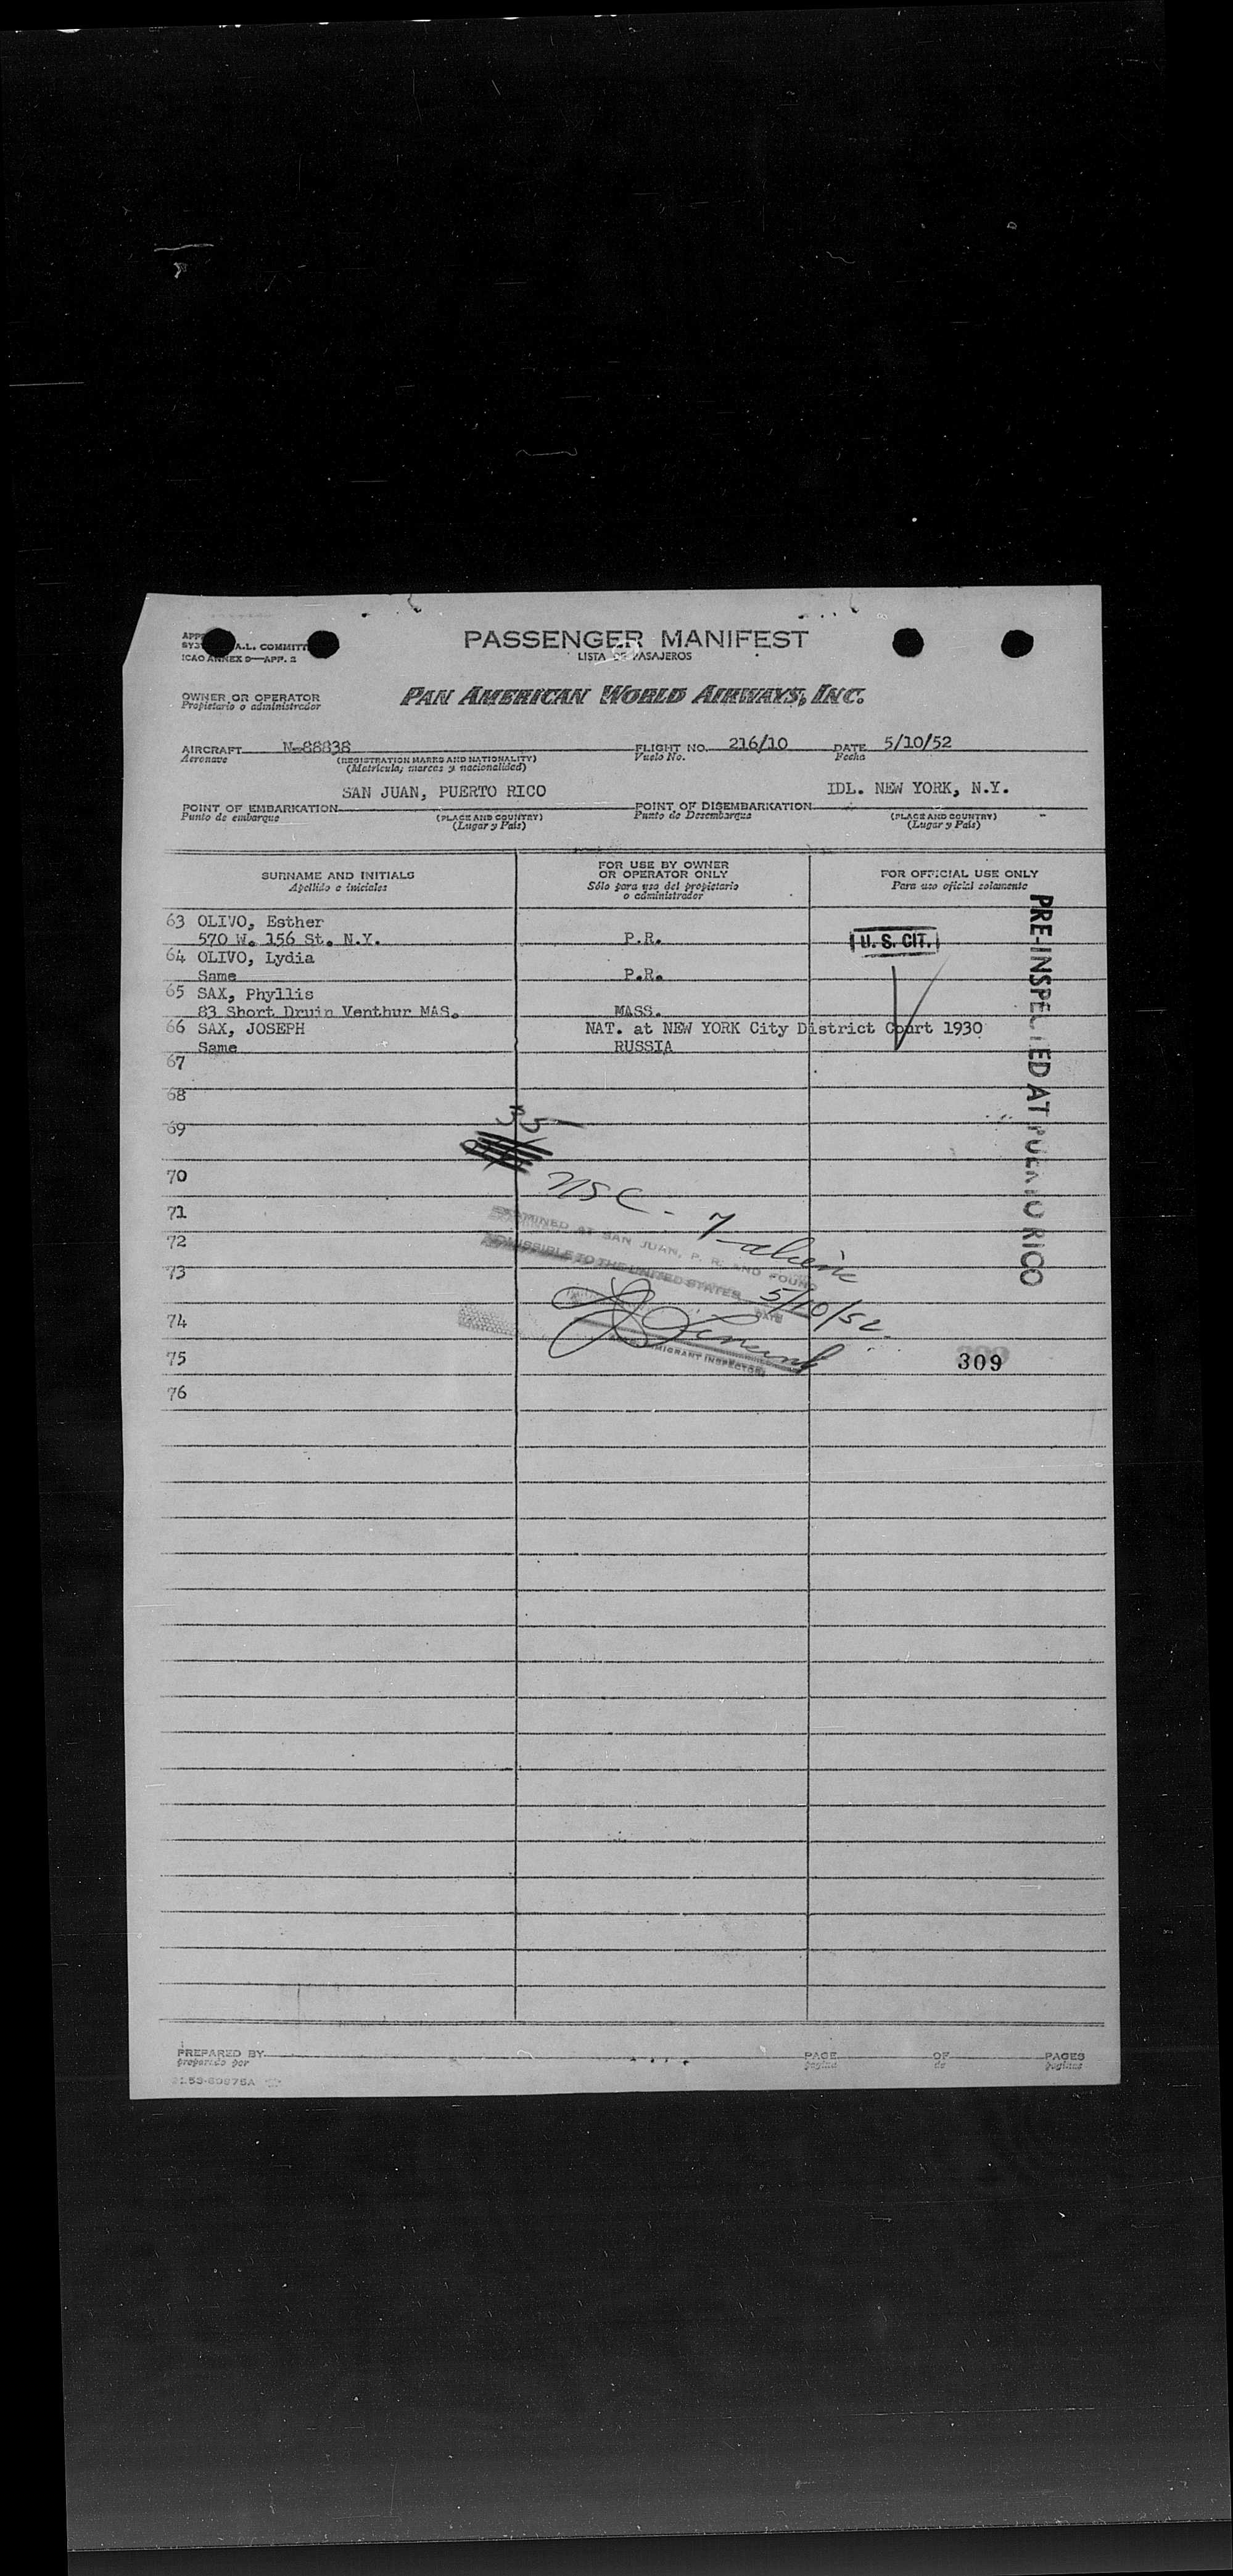 PASSENGER MANIFEST
LISTA DE PASAJEROS
A.L. COMMITT
ICAO ANNEX 9—APP. 2
OWNER OR OPERATOR
Propietario o administrador
PAN AMERICAN WORLD AIRWAYS, INC.
AIRCRAFT N-88838 FLIGHT NO. 216/10 DATE 5/10/52
Aeronave (REGISTRATION MARKS AND NATIONALITY) Vuelo No. Fecha
(Matricula, marcas y nacionalidad)
SAN JUAN, PUERTO RICO IDL. NEW YORK, N.Y.
POINT OF EMBARKATION POINT OF DISEMBARKATION
Punto de embarque (PLACE AND COUNTRY) Punto de Desembarque (PLACE AND COUNTRY)
(Lugar y Pais) (Lugar y Pais)
SURNAME AND INITIALS
Apellido e iniciales
FOR USE BY OWNER
OR OPERATOR ONLY
Sólo para uso del propietario
o administrador
FOR OFFICIAL USE ONLY
Para uso oficial solamente
63 OLIVO, Esther
570 W. 156 St. N.Y. P.R. U. S. CIT.
64 OLIVO, Lydia
Same P.R.
65 SAX, Phyllis
83 Short Druin Venthur MAS. MASS.
66 SAX, JOSEPH NAT. at NEW YORK City District Court 1930
Same RUSSIA
67
68
69
70
71
72
73
74
75
76
PRE-INSPECTED AT PUERTO RICO
35
USC - 7 aliens
EXAMINED AT SAN JUAN, P. R. AND FOUND
ADMISSIBLE TO THE UNITED STATES
5/10/52
DATE
IMMIGRANT INSPECTOR
309
PREPARED BY PAGE OF PAGES
preparado por pagina de paginas